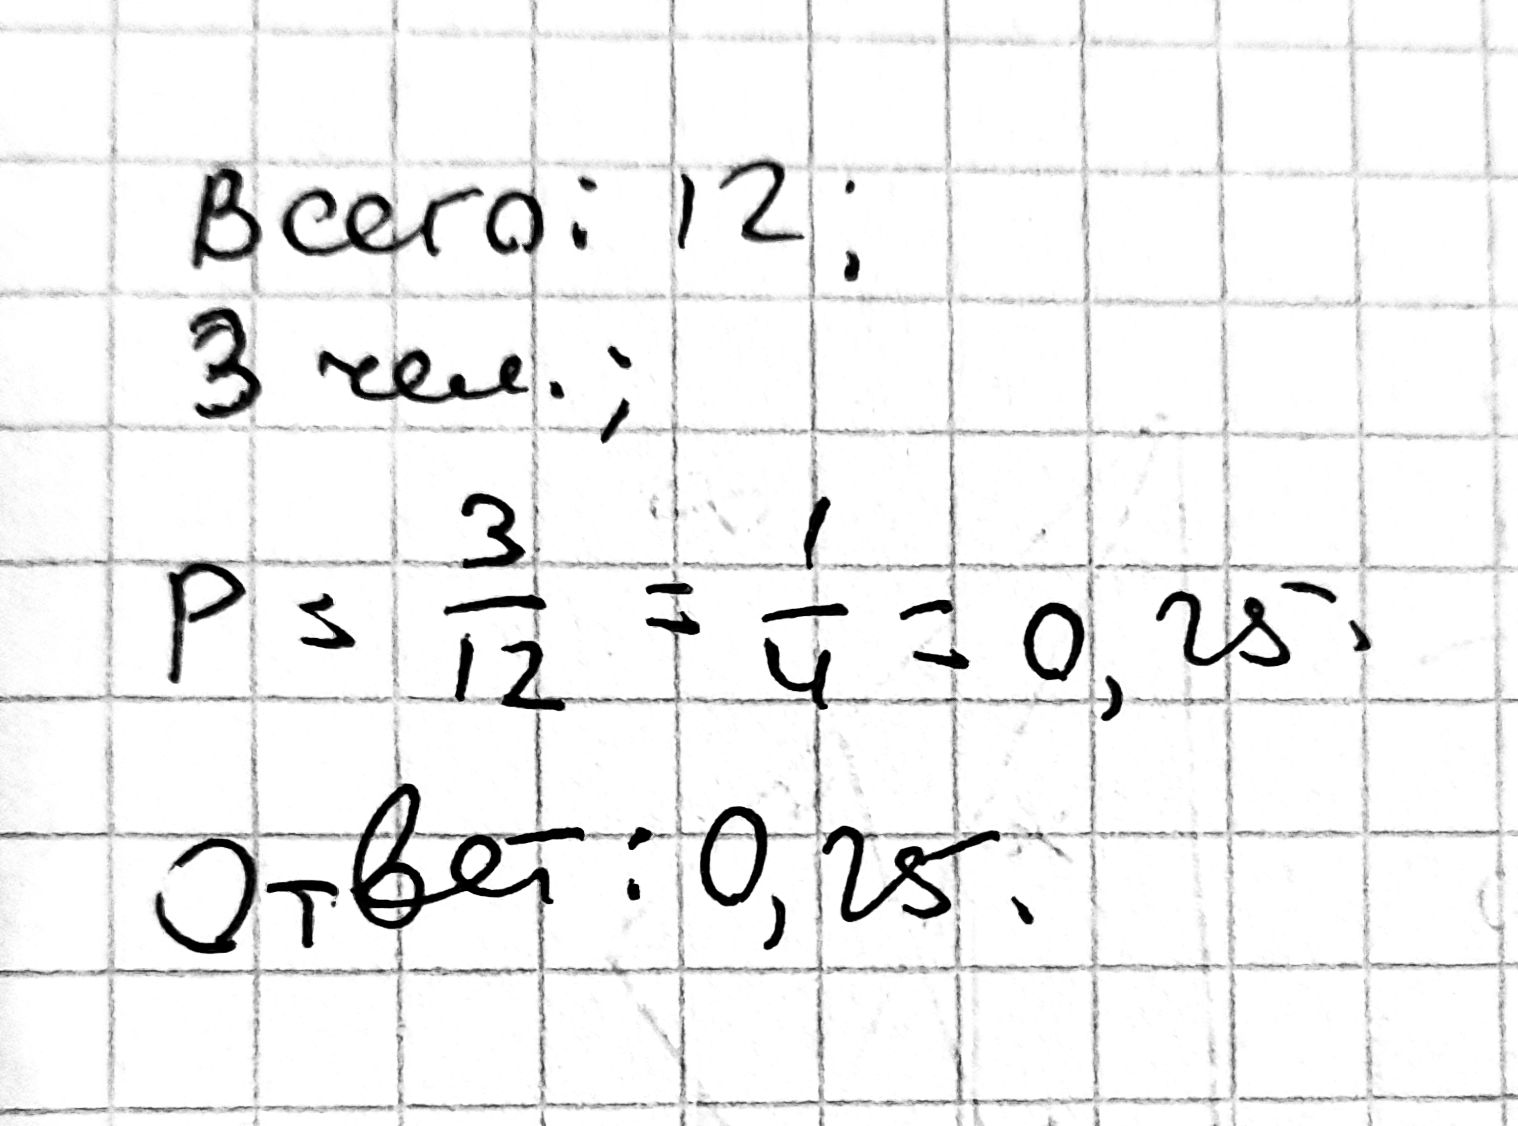 Всего: 12;
3 чел.;
P = 3/12 = 1/4 = 0,25.
Ответ: 0,25.